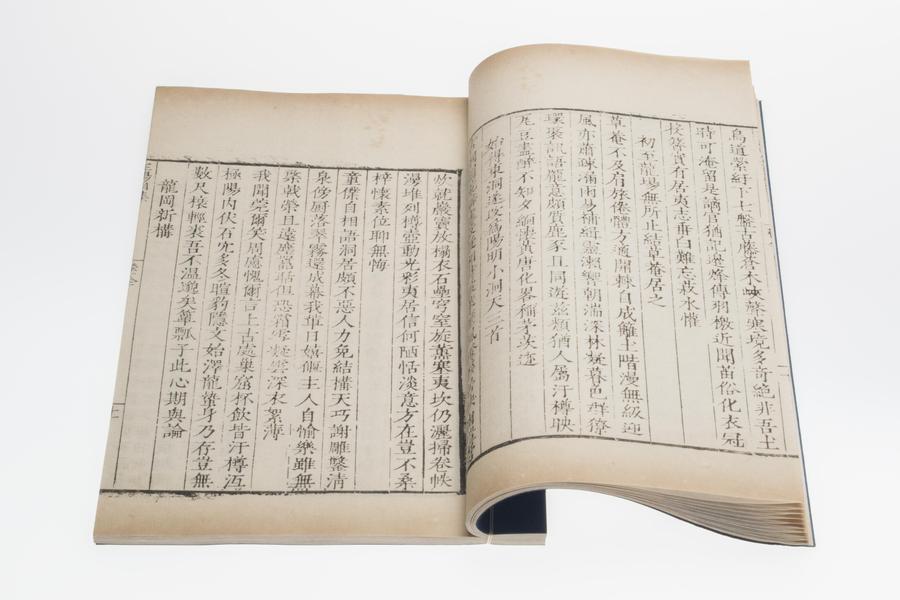 鳥道縈紆下七盤古藤蒼木峽聲寒境多奇絕非吾土
時可淹留是謫官猶記邊烽傳羽檄近聞苗俗化衣冠
投簪實有居夷志垂白難忘菽水懽
初至龍場無所止結草菴居之
草菴不及肩旅倦體方適開棘自成籬土階漫無級迎
風亦蕭疎漏雨易補緝靈瀨響朝湍深林凝暮色群僚
環聚訊語龐意頗質鹿豕且同遊茲類猶人屬汙樽映
瓦豆盡醉不知夕緬懷黃唐化畧稱茅茨迹
始得東洞遂改為陽明小洞天三首
炊就巖竇放榻依石壘穹窒旋薰塞夷坎仍灑掃卷帙
漫堆列樽壺動光彩夷居信何陋恬淡意方在豈不桑
梓懷素位聊無悔
童僕自相語洞居頗不惡人力免結構天巧謝雕鑿清
泉傍厨落翠霧還成幕我輩日嬉偃主人自愉樂雖無
棨戟榮且遠塵囂聒但恐霜雪凝雲深衣絮薄
我聞莞爾笑周慮愧爾言上古處巢窟杯飲皆汙樽沍
極陽內伏石穴多冬暄豹隱文始澤龍蟄身乃存豈無
數尺榱輕裘吾不溫邈矣簞瓢子此心期與論
龍岡新構